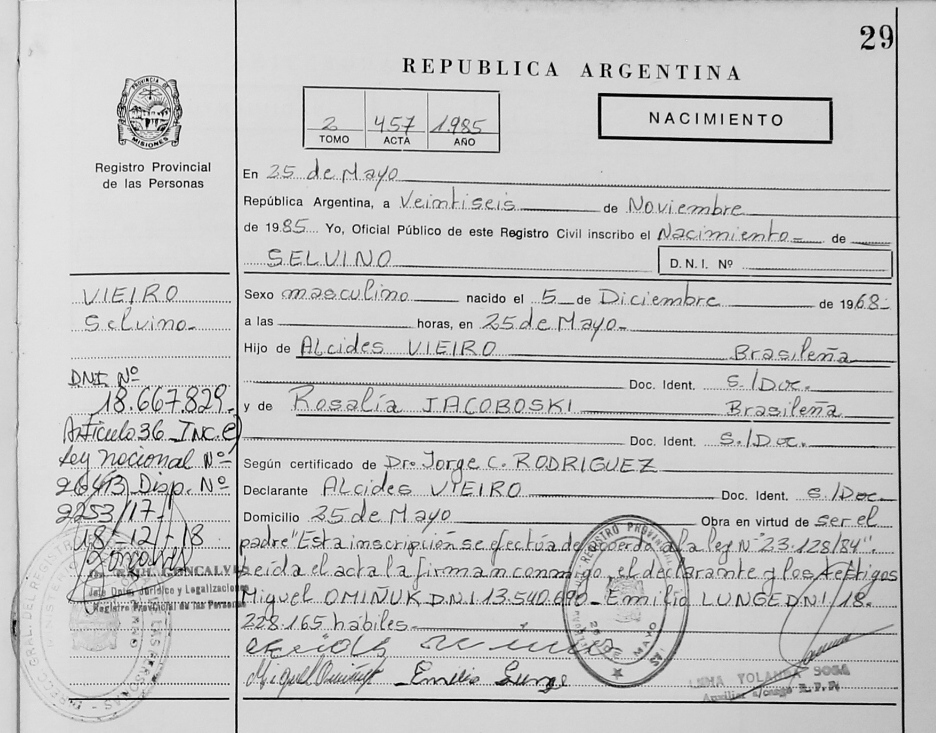 29
REPUBLICA ARGENTINA
PROVINCIA DE
MISIONES
Registro Provincial
de las Personas
2 457 1.985
TOMO ACTA AÑO
NACIMIENTO
En 25 de Mayo
República Argentina, a Veintiseis de Noviembre
de 1985 Yo, Oficial Público de este Registro Civil inscribo el Nacimiento- de
SELVINO
D.N.I. Nº
Sexo masculino nacido el 5 de Diciembre de 1968-
a las horas, en 25 de Mayo-
Hijo de ALcides VIEIRO Brasileña
Doc. Ident. s./Doc.
y de Rosalía JACOBOSKI Brasileña
Doc. Ident. s./Doc.
Según certificado de Dr. Jorge C. RODRIGUEZ
Declarante ALcides VIEIRO Doc. Ident. s/Doc
Domicilio 25 de Mayo Obra en virtud de ser el
padre "Esta inscripción se efectúa de acuerdo a la ley Nº 23.128/84".
Leída el acta la firman conmigo, el declarante y los testigos
Miguel OMIÑUK D.N.I 13.540.690- Emilio LUNGE D.N.I 18.
228.165 habiles-
Miguel Omiñuk Emilio Lunge
YOLANDA SOSA
Auxiliar a/cargo R.P.P.
VIEIRO
Selvino-
DNI. Nº
18.667.829-
Artículo 36 INC. e)
Ley nacional Nº
26413 Disp. Nº
2253/17-
18-12-18
RAUL GONCALV
Jefe Dpto. Jurídico y Legalizacion
Registro Provincial de las Personas
REGISTRO PROVINCIAL
25 DE MAYO